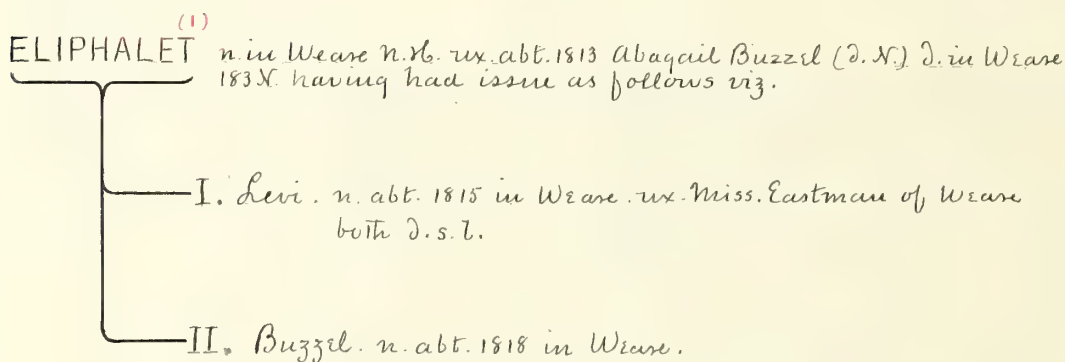 (1)
ELIPHALET n. in Weare N.H. ux. abt. 1813 Abagail Buzzel (d.N.) d. in Weare
183N. having had issue as follows viz.
I. Levi. n. abt. 1815 in Weare. ux. Miss. Eastman of Weare
both d.s.l.
II. Buzzel. n. abt. 1818 in Weare.